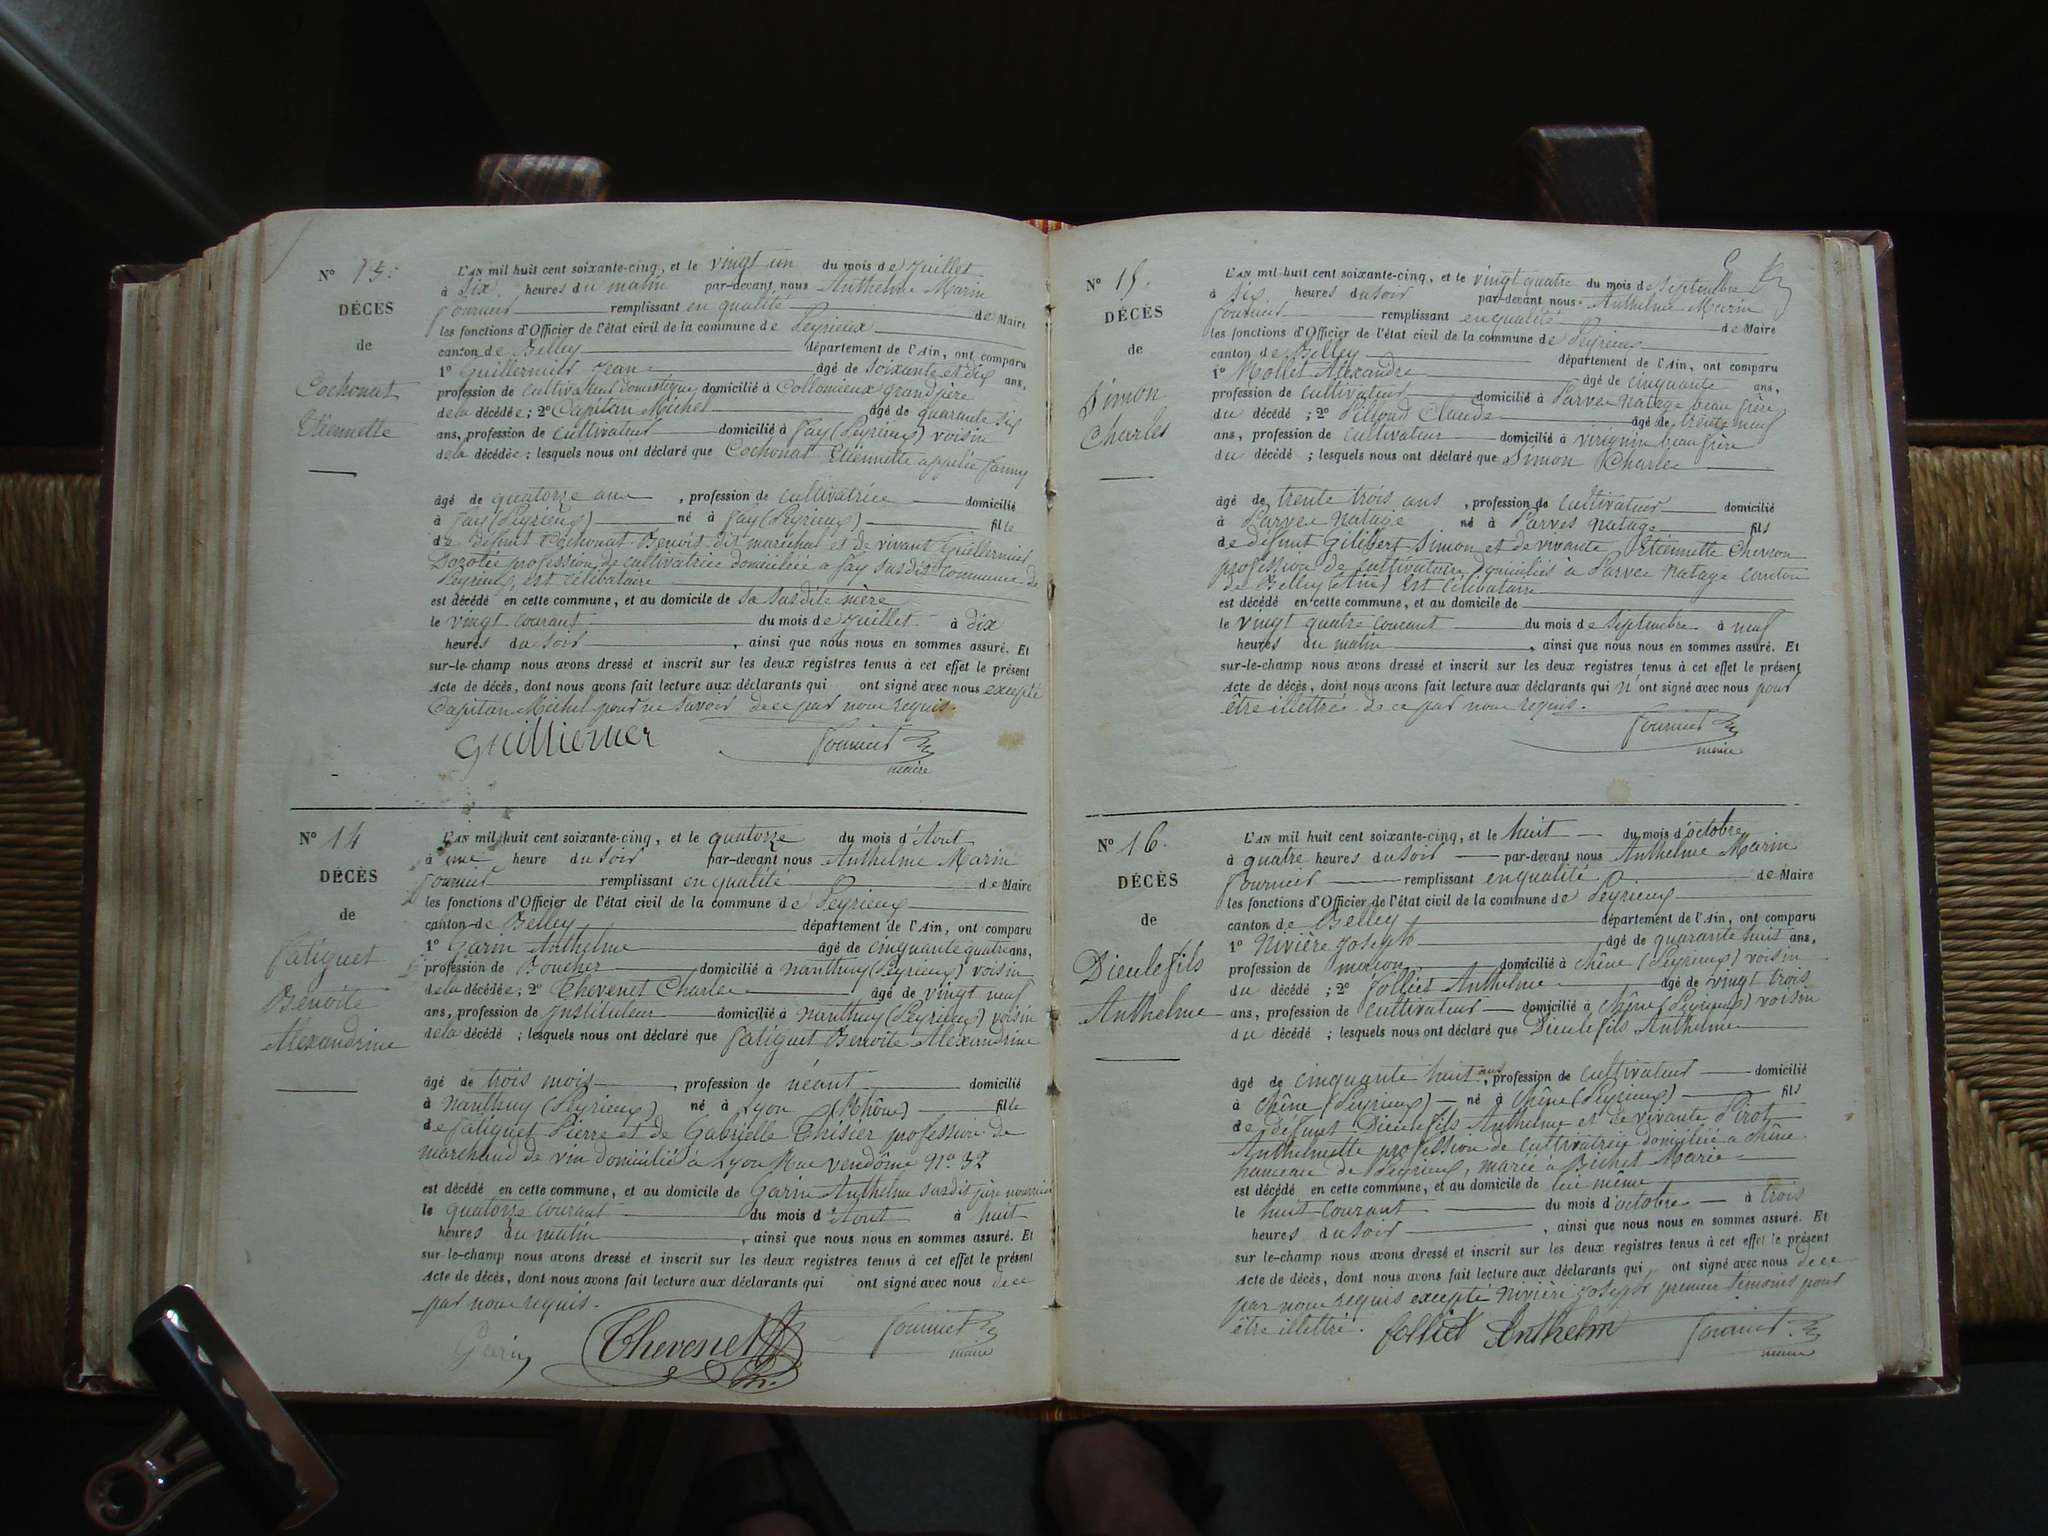 N° 13.
DÉCÈS
de
Cochonat
Etiennette
L'AN mil huit cent soixante-cinq, et le vingt un du mois de Juillet
à six heures du matin par-devant nous Anthelme Marin
Fournier remplissant en qualité de Maire
les fonctions d'Officier de l'état civil de la commune de Peyrieux
canton de Belley département de l'Ain, ont comparu
1° Guillermier Jean âgé de soixante et dix ans,
profession de cultivateur domestique domicilié à Collomieux grand père
de la décédée; 2° Capitan Michel âgé de quarante six
ans, profession de cultivateur domicilié à Fay (Peyrieux) voisin
de la décédée; lesquels nous ont déclaré que Cochonat Etiennette appelée Fanny
âgé de quatorze ans, profession de cultivatrice domicilié
à Fay (Peyrieux) né à Fay (Peyrieux) fille
de défunt Cochonat Benoit dit maréchal et de vivant Guillermier
profession de cultivatrice domiciliée à Fay susdite Commune de
Peyrieux, est célibataire
est décédé en cette commune, et au domicile de sa susdite mère
le vingt courant du mois de Juillet à dix
heures du soir, ainsi que nous nous en sommes assuré. Et
sur-le-champ nous avons dressé et inscrit sur les deux registres tenus à cet effet le présent
Acte de décès, dont nous avons fait lecture aux déclarants qui ont signé avec nous excepté
Capitan Michel pour ne savoir de ce par nous requis.
Guillermier Fournier
maire
N° 14
DÉCÈS
de
Fatiguet
Benoite
Alexandrine
L'AN mil huit cent soixante-cinq, et le quatorze du mois d'Aout
à une heure du soir par-devant nous Anthelme Marin
Fournier remplissant en qualité de Maire
les fonctions d'Officier de l'état civil de la commune de Peyrieux
canton de Belley département de l'Ain, ont comparu
1° Garin Anthelme âgé de cinquante quatre ans,
profession de Boucher domicilié à Nanthuy (Peyrieux) voisin
de la décédée; 2° Thevenet Charles âgé de vingt neuf
ans, profession de Instituteur domicilié à Nanthuy (Peyrieux) voisin
de la décédé; lesquels nous ont déclaré que Fatiguet Benoite Alexandrine
âgé de trois mois, profession de néant domicilié
à Nanthuy (Peyrieux) né à Lyon (Rhône) fille
de Fatiguet Pierre et de Gabrielle Thisier profession de
marchand de vin domicilié à Lyon Rue vendôme N° 32
est décédé en cette commune, et au domicile de Garin Anthelme susdit père nourricier
le quatorze courant du mois d'Aout à huit
heures du matin, ainsi que nous nous en sommes assuré. Et
sur-le-champ nous avons dressé et inscrit sur les deux registres tenus à cet effet le présent
Acte de décès, dont nous avons fait lecture aux déclarants qui ont signé avec nous de ce
par nous requis.
Thevenet Fournier
maire
N° 15.
DÉCÈS
de
Simon
Charles
L'AN mil huit cent soixante-cinq, et le vingt quatre du mois de Septembre
à six heures du soir par-devant nous Anthelme Marin
Fournier remplissant en qualité de Maire
les fonctions d'Officier de l'état civil de la commune de Peyrieux
canton de Belley département de l'Ain, ont comparu
1° Mollet Alexandre âgé de cinquante ans,
profession de cultivateur domicilié à Parves Natage beau frère
du décédé; 2° Pilloud Claude âgé de trente neuf
ans, profession de cultivateur domicilié à virignin beau frère
du décédé; lesquels nous ont déclaré que Simon Charles
âgé de trente trois ans, profession de cultivateur domicilié
à Parves Natage né à Parves Natage fils
de défunt Gilibert Simon et de vivante Etiennette Chevron
profession de cultivatrice domiciliés à Parves Natage Canton
de Belley (Ain) Est célibataire
est décédé en cette commune, et au domicile de
le vingt quatre courant du mois de Septembre à neuf
heures du matin, ainsi que nous nous en sommes assuré. Et
sur-le-champ nous avons dressé et inscrit sur les deux registres tenus à cet effet le présent
Acte de décès, dont nous avons fait lecture aux déclarants qui n'ont signé avec nous pour
être illettrés de ce par nous requis.
Fournier
maire
N° 16.
DÉCÈS
de
Dieulefils
Anthelme
L'AN mil huit cent soixante-cinq, et le huit du mois d'octobre
à quatre heures du soir par-devant nous Anthelme Marin
Fournier remplissant en qualité de Maire
les fonctions d'Officier de l'état civil de la commune de Peyrieux
canton de Belley département de l'Ain, ont comparu
1° Nivière Joseph âgé de quarante huit ans,
profession de maçon domicilié à Chêne (Peyrieux) voisin
du décédé; 2° Folliet Anthelme âgé de vingt trois
ans, profession de cultivateur domicilié à Chêne (Peyrieux) voisin
du décédé; lesquels nous ont déclaré que Dieulefils Anthelme
âgé de cinquante huit ans, profession de cultivateur domicilié
à Chêne (Peyrieux) né à Chêne (Peyrieux) fils
de défunt Dieulefils Anthelme et de vivante Pirot
Anthelmette profession de cultivatrice domiciliée à Chêne
hameau de Peyrieux, marié à Bichet Marie
est décédé en cette commune, et au domicile de lui même
le huit courant du mois d'octobre à trois
heures du soir, ainsi que nous nous en sommes assuré. Et
sur le-champ nous avons dressé et inscrit sur les deux registres tenus à cet effet le présent
Acte de décès, dont nous avons fait lecture aux déclarants qui ont signé avec nous de ce
par nous requis excepté Nivière Joseph premier témoins pour
être illettré. Folliet Anthelm Fournier
maire